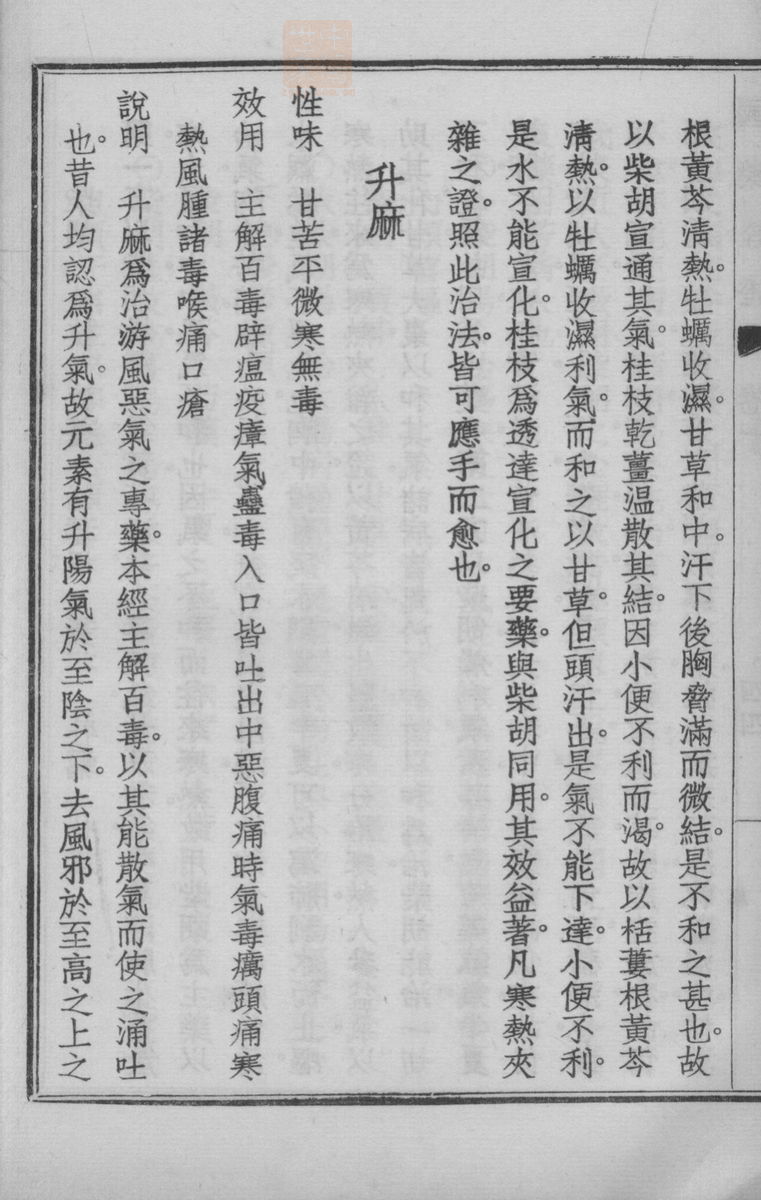 根黃芩淸熱。牡蠣收濕。甘草和中。汗下後胸脅滿而微結。是不和之甚也。故
以柴胡宣通其氣。桂枝乾薑温散其結。因小便不利而渴。故以栝蔞根黃芩
淸熱。以牡蠣收濕利氣。而和之以甘草。但頭汗出。是氣不能下達。小便不利。
是水不能宣化。桂枝爲透達宣化之要藥。與柴胡同用。其效益著。凡寒熱夾
雜之證。照此治法。皆可應手而愈也。
升麻
性味　甘苦平微寒無毒
效用　主解百毒辟瘟疫瘴氣蠱毒入口皆吐出中惡腹痛時氣毒癘頭痛寒
熱風腫諸毒喉痛口瘡
說明　升麻爲治游風惡氣之專藥。本經主解百毒。以其能散氣而使之涌吐
也。昔人均認爲升氣。故元素有升陽氣於至陰之下。去風邪於至高之上之